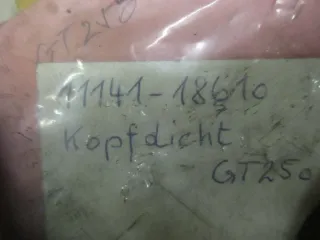 GT250
11141-18610
Kopfdicht
GT250